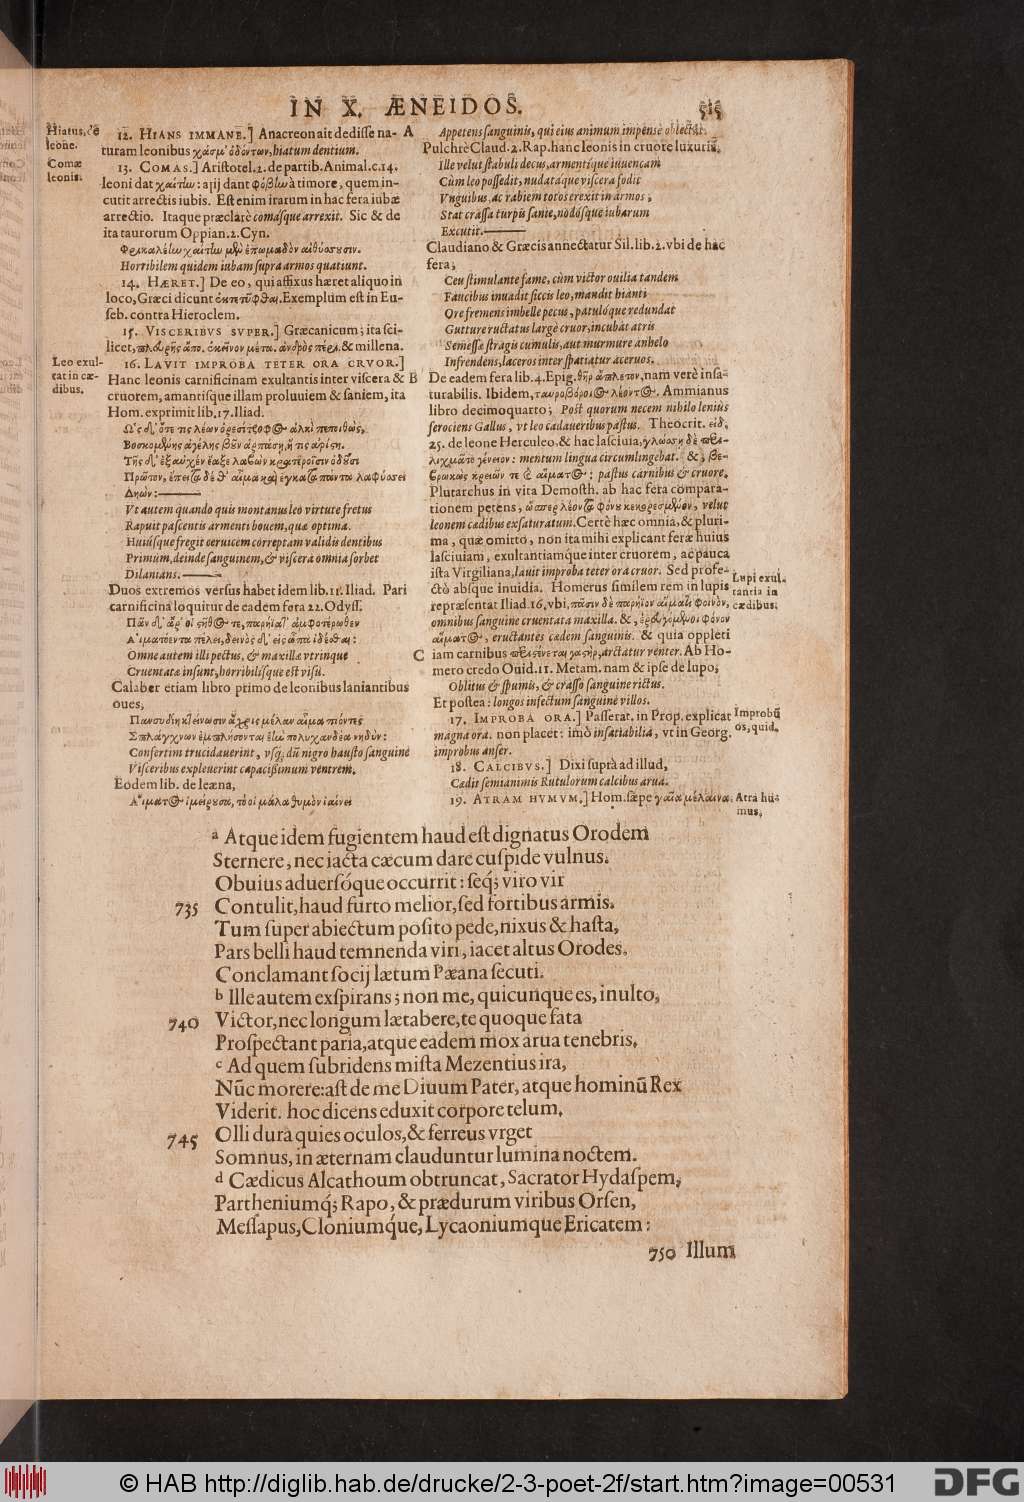 IN X. ÆNEIDOS.
515
Hiatus, de
leone.
Comæ
leonis.
12. HIANS IMMANE.] Anacreon ait dedisse na-
turam leonibus χάσμ' ὀδόντων, hiatum dentium.
13. COMAS.] Aristotel. 2. de partib. Animal. c. 14.
leoni dat χαίτίω: alij dant φόβίω à timore, quem in-
cutit arrectis iubis. Est enim irarum in hac fera iubæ
arrectio. Itaque præclarè comasque arrexit. Sic & de
ita taurorum Oppian. 2. Cyn.
Horribilem quidem iubam supra armos quatiunt.
14. HÆRET.] De eo, qui affixus hæret aliquo in
loco, Græci dicunt Exemplum est in Eu-
seb. contra Hieroclem.
15. VISCERIBVS SVPER.] Græcanicum; ita sci-
licet, & millena.
Leo exul-
tat in cæ-
dibus.
16. LAVIT IMPROBA TETER ORA CRVOR.]
Hanc leonis carnificinam exultantis inter viscera & B
cruorem, amantisque illam proluuiem & saniem, ita
Hom. exprimit lib. 17. Iliad.
Ὡς δ' ὅτε τίς τε λέων ὀρεσίτροφος ἀλκὶ πεποιθὼς,
Βοσκομένης ἀγέλης βοῦν ἁρπάσῃ, ἥ τις ἀρίστη.
Τῆς δ' ἐξ αὐχέν' ἔαξε λαβὼν κρατεροῖσιν ὀδοῦσι
Πρῶτον, ἔπειτα δέ θ' αἷμα καὶ ἔγκατα πάντα λαφύσσει
Δῃῶν:
Vt autem quando quis montanus leo virtute fretus
Rapuit pascentis armenti bouem, quæ optima.
Huiúsque fregit ceruicem correptam validis dentibus
Primùm, deinde sanguinem, & viscera omnia sorbet
Dilanians.
Duos extremos versus habet idem lib. 11. Iliad. Pari
carnificina loquitur de eadem fera 22. Odyss.
Πᾶν δ' ἄρ' οἱ στῆθός τε, παρήϊά τ' ἀμφοτέρωθεν
Αἱματόεντα πέλει, δεινὸς δ' εἰς ὦπα ἰδέσθαι:
Omne autem illi pectus, & maxillæ vtrinque
Cruentatæ insunt, horribilisque est visu.
Calaber etiam libro primo de leonibus laniantibus
oues,
Σπλάγχνων ἐμπλήσονται ἑὴν πολυχανδέα νηδύν:
Confertim trucidauerint, vsq; dũ nigro hausto sanguine
Visceribus expleuerint capacißimum ventrem.
Eodem lib. de leæna,
A
Appetens sanguinis, qui eius animum impensè oblectat.
Pulchrè Claud. 2. Rap. hanc leonis in cruore luxuriã.
Ille velut stabuli decus, armentíque iuuencam
Cùm leo possedit, nudatáque viscera fodit
Vnguibus, ac rabiem totos erexit in armos,
Stat crassa turpis sanie, nodósque iubarum
Excutit.
Claudiano & Græcis annectatur Sil. lib. 2. vbi de hac
fera;
Ceu stimulante fame, cùm victor ouilia tandem
Faucibus inuadit siccis leo, mandit hianti
Ore fremens imbelle pecus, patulóque redundat
Gutture ructatus largè cruor, incubat atris
Semesæ stragis cumulis, aut murmure anhelo
Infrendens, laceros inter spatiatur aceruos.
De eadem fera lib. 4. Epig. θὴρ ἄπλετον, nam verè insa-
turabilis. Ibidem, ταυροβόροιο λέοντος. Ammianus
libro decimoquarto; Post quorum necem nihilo leniùs
ferociens Gallus, vt leo cadaueribus pastus. Theocrit. εἰδ.
25. de leone Herculeo, & hac lasciuia, γλώσσῃ δὲ περι-
λιχμᾶτο γένειον: mentum lingua circumlingebat. & , βε-
βρωκὼς κρειῶν τε καὶ αἵματος: pastus carnibus & cruore.
Plutarchus in vita Demosth. ab hac fera compara-
tionem petens, ὥσπερ λέοντα φόνου κεκορεσμένον, velut
leonem cædibus exsaturatum. Certè hæc omnia, & pluri-
ma, quæ omitto, non ita mihi explicant feræ huius
lasciuiam, exultantiamque inter cruorem, ac pauca
ista Virgiliana, lauit improba teter ora cruor. Sed profe-
ctò absque inuidia. Homerus similem rem in lupis
repræsentat Iliad. 16. vbi, πᾶσιν δὲ παρήϊον αἵματι φοινόν,
omnibus sanguine cruentata maxilla. &, ἐρευγόμενοι φόνον
αἵματος, eructantes cædem sanguinis. & quia oppleti
C iam carnibus περιστένεται γαστὴρ, arctatur venter. Ab Ho-
mero credo Ouid. 11. Metam. nam & ipse de lupo;
Oblitus & spumis, & crasso sanguine rictus.
Et postea: longos infectum sanguine villos.
17. IMPROBA ORA.] Passerat. in Prop. explicat
magna ora. non placet: imò insatiabilia, vt in Georg.
improbus anser.
18. CALCIBVS.] Dixi suprà ad illud,
Cædit semianimis Rutulorum calcibus arua.
19. ATRAM HVMVM.] Hom. sæpe γαῖα μέλαινα.
Lupi exul-
tantia in
cædibus.
Improbũ
os, quid.
Atra hu-
mus,
a Atque idem fugientem haud est dignatus Orodem
Sternere, nec iacta cæcum dare cuspide vulnus.
Obuius aduersóque occurrit: seq́; viro vir
735 Contulit, haud furto melior, sed fortibus armis.
Tum super abiectum posito pede, nixus & hasta,
Pars belli haud temnenda viri, iacet altus Orodes.
Conclamant socij lætum Pæana secuti.
b Ille autem exspirans; non me, quicunque es, inulto,
740 Victor, nec longum lætabere, te quoque fata
Prospectant paria, atque eadem mox arua tenebris.
c Ad quem subridens mista Mezentius ira,
Nũc morere: ast de me Diuum Pater, atque hominũ Rex
Viderit. hoc dicens eduxit corpore telum,
745 Olli dura quies oculos, & ferreus vrget
Somnus, in æternam clauduntur lumina noctem.
d Cædicus Alcathoum obtruncat, Sacrator Hydaspem,
Partheniumq́; Rapo, & prædurum viribus Orsen,
Messapus, Cloniumq́ue, Lycaoniumque Ericatem:
750 Illum
© HAB http://diglib.hab.de/drucke/2-3-poet-2f/start.htm?image=00531
DFG